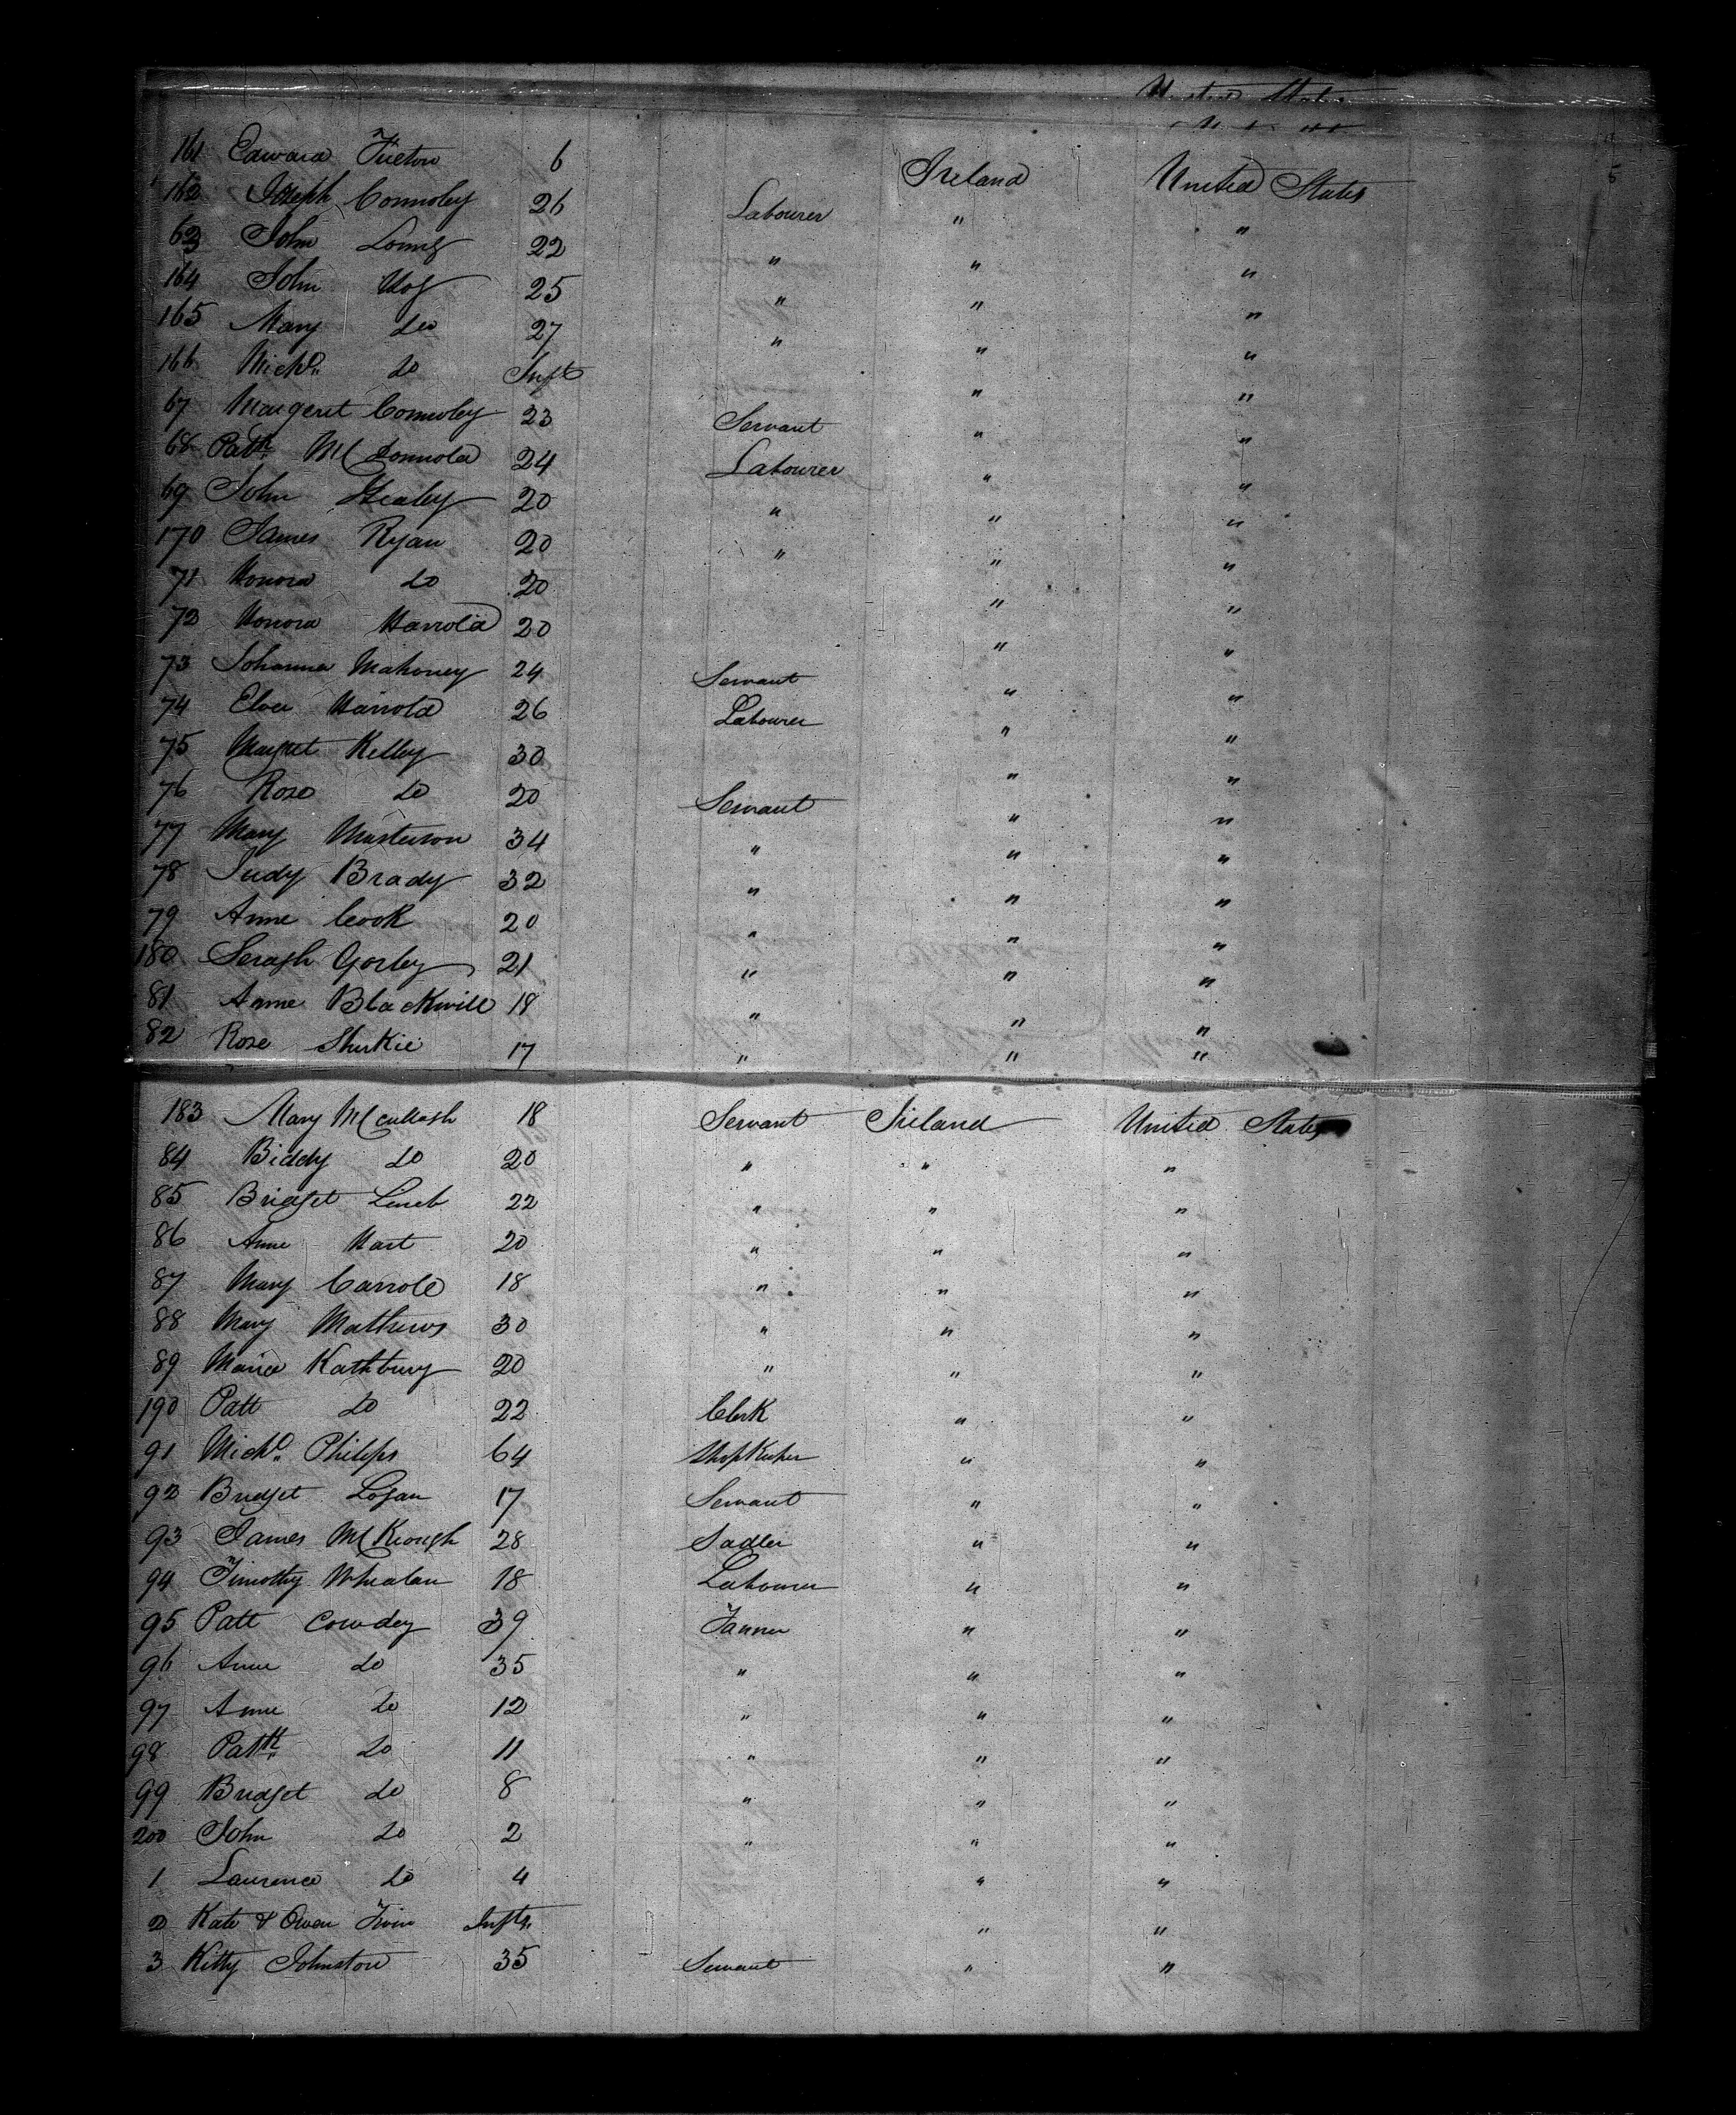 United States
161 Edward Fueton 6 Ireland United States
162 Joseph Connoley 26 Labourer " "
63 John 22 " " "
164 John 25 " " "
165 Mary do 27 " " "
166 Michl. do Inft " "
67 Margeret Connoley 23 Servant " "
68 Patk McDonnold 24 Labourer " "
69 John Healey 20 " " "
170 James Ryan 20 " " "
71 Honora do 20 " "
72 Honora Harrold 20 " "
73 Johanna Mahoney 24 Servant " "
74 Harrold 26 Labourer " "
75 Margret Kelley 30 " "
76 Rose do 20 Servant " "
77 Mary Masterson 34 " " "
78 Judy Brady 32 " " "
79 Anne Cook 20 " " "
180 Seragh Gorley 21 " " "
81 Anne Blackwill 18 " " "
82 Rose Sherkie 17 " " "
183 Mary McCullagh 18 Servant Ireland United States
84 Biddy do 20 " " "
85 Bridget Linch 22 " " "
86 Anne Hart 20 " " "
87 Mary Carrole 18 " " "
88 Mary Mathews 30 " " "
89 Maria Kathbury 20 " " "
190 Patt do 22 Clerk " "
91 Michl. Philips 64 Shopkeeper " "
92 Bridget Logan 17 Servant " "
93 James McKeough 28 Sadler " "
94 Timothy Whealan 18 Labourer " "
95 Patt Cowdey 39 Tanner " "
96 Anne do 35 " " "
97 Anne do 12 " " "
98 Patk. do 11 " " "
99 Bridget do 8 " " "
200 John do 2 " " "
1 Laurence do 4 " "
2 Kate & Owen Twin Infts. " "
3 Kitty Johnston 35 Servant " "